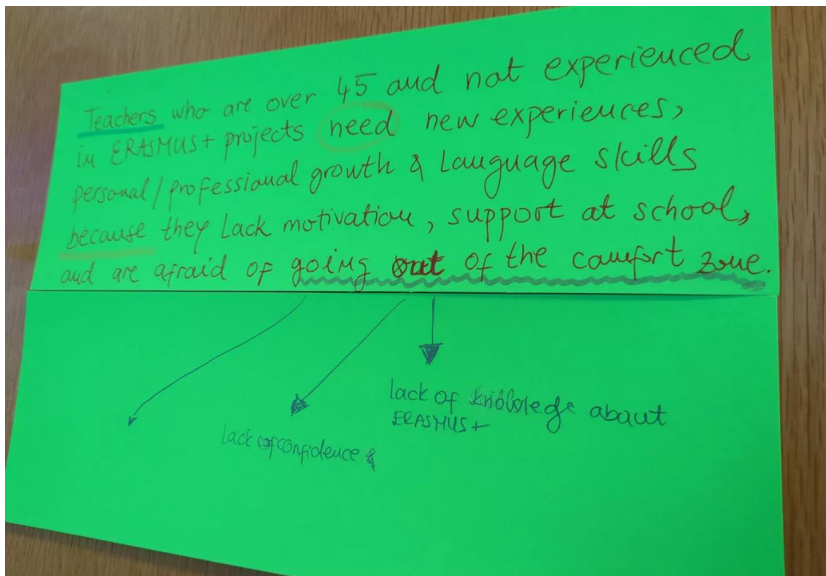 Teachers who are over 45 and not experienced
in ERASMUS+ projects need new experiences,
personal/professional growth & Language skills
because they Lack motivation, support at school,
and are afraid of going out of the comfort zone.
lack of knowledge about
ERASMUS+
lack of confidence &